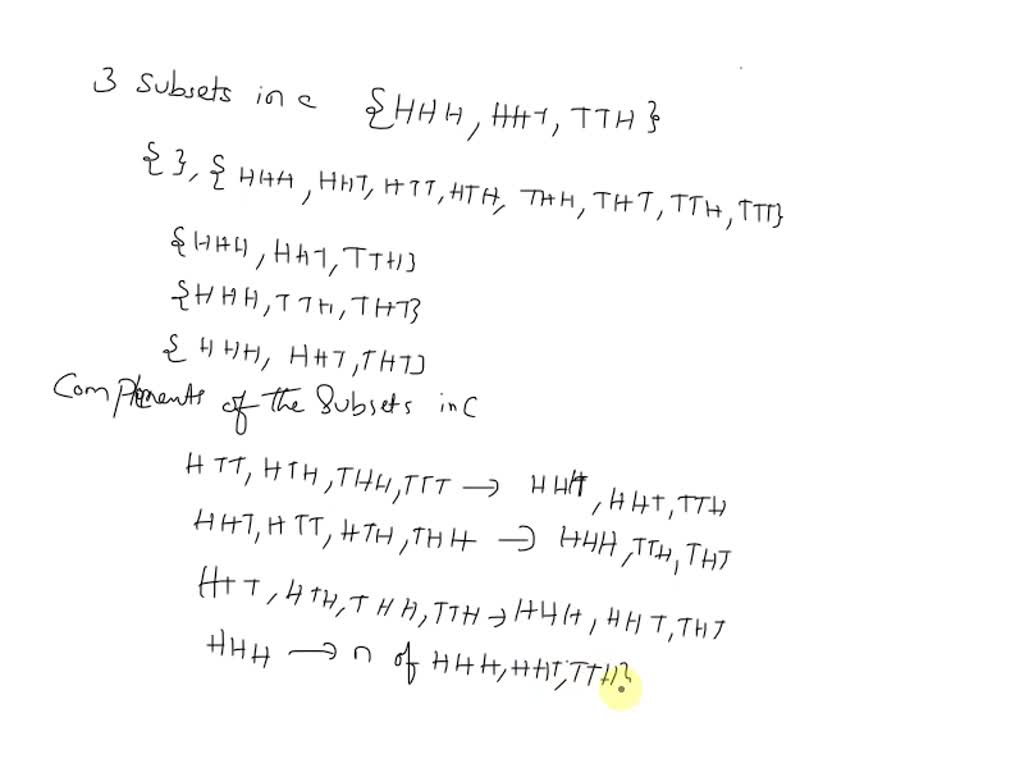 3 Subsets in c {HHH, HHT, TTH}
{ }, { HHH, HHT, HTT, HTH, THH, THT, TTH, TTT}
{HHH, HHT, TTH}
{HHH, TTH, THT}
{ HHH, HHT, THT}
Complements of the Subsets in C
HTT, HTH, THH, TTT → HHH, HHT, TTH
HHT, HTT, HTH, THH → HHH, TTH, THT
HTT, HTH, THH, TTH → HHH, HHT, THT
HHH → n of HHH, HHT, TTH}